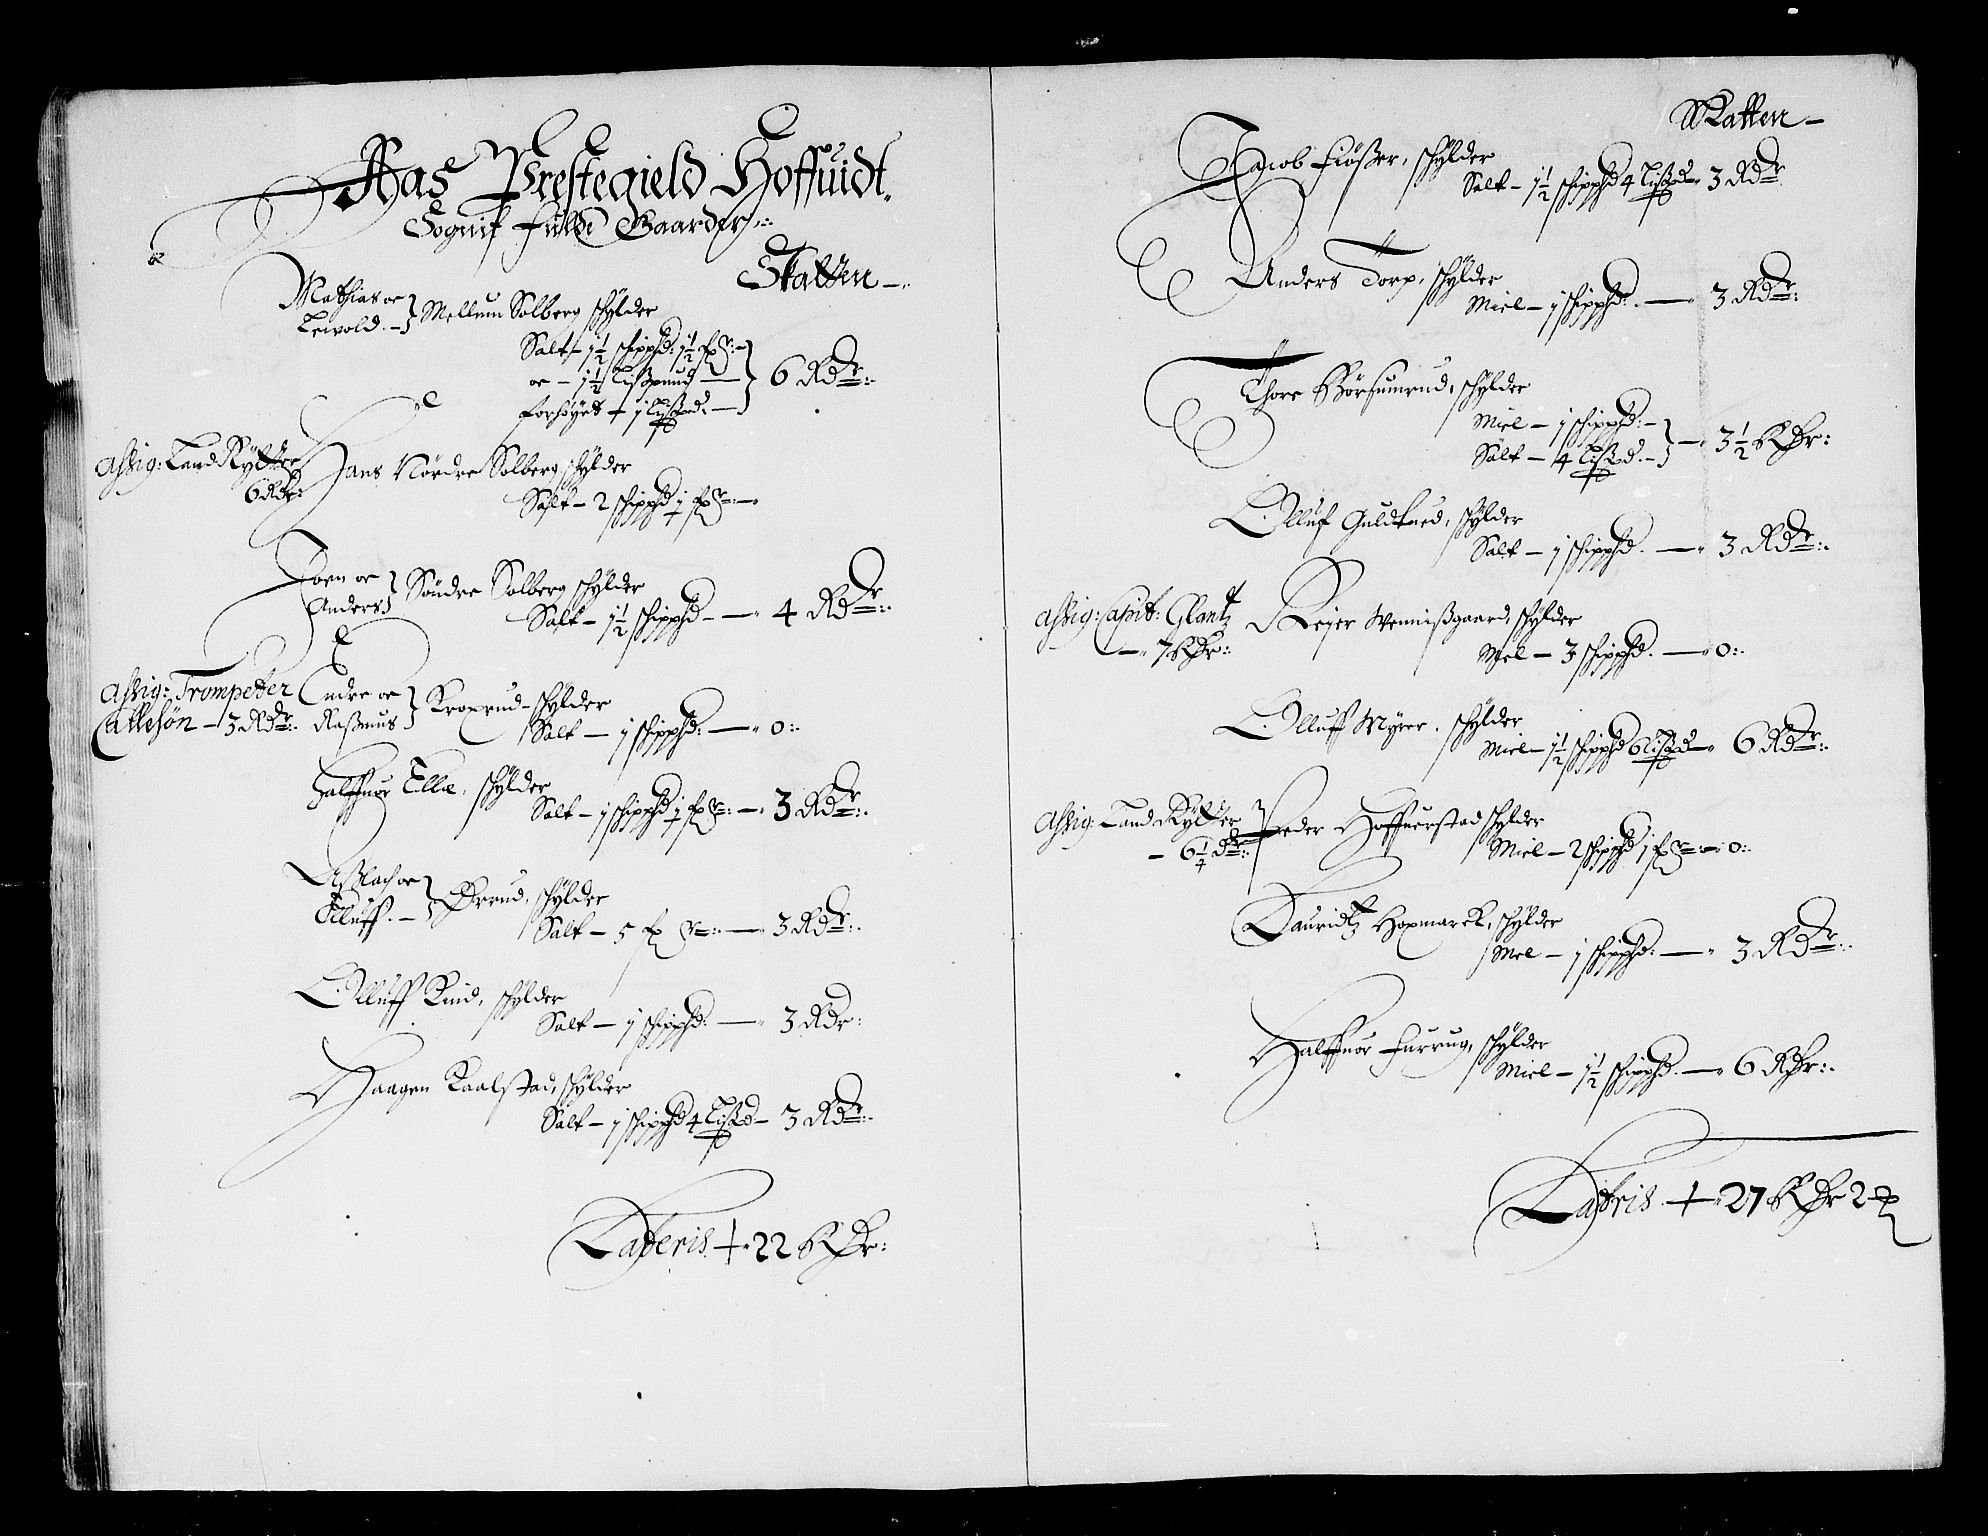 Aas Prestegield Hoffuidt
Sognis fulde Gaarder
Skatten
Mathias oc
Leiuold } Mellum Solberg schylder
Salt – 1½ schippd: 1½ fr:
oc – 1½ Lißpund
forhøyet – 1 Lißpd. } 6 Rdr:
Assig: Land Rytter
6 Rdr:
Hans Nordre Solberg schylder
Salt – 2 schippd 1 fr:
Joen oc
Anders } Søndre Solberg schylder
Salt – 1½ schippd – 4 Rdr:
Assig: Trompeter
Callesøn – 3 Rdr:
Endre oc
Rasmus } Kroxrud – schylder
Salt – 1 schippd: – 0:
Halffuor Ellie, schylder
Salt – 1 schippd 1 fr: – 3 Rdr:
Asslach oc
Olluff. } Ørrud, schylder
Salt – 5 fr: – 3 Rdr:
Olluff Rud, schylder
Salt – 1 schippd: – 3 Rdr:
Haagen Kaalstad, schylder
Salt – 1 schippd 4 Lißpd – 3 Rdr:
Lateris – 22 Rdr:
Skatten –
Jacob Fiøsser, schylder
Salt – 1½ schippd 4 Lißpd – 3 Rdr
Anders Torp, schylder
Miel – 1 schippd: – 3 Rdr:
Thore Børsumrud, schylder
Miel – 1 schippd: –
Salt – 4 Lißpd. – } 3½ Rdr:
Olluf Guldkued, schylder
Salt – 1 schippd. – 3 Rdr:
Assig: Capit: Glantz
– 7 Rdr:
Reier Wennißgaard, schylder
Mel – 3 schippd. – 0:
Olluff Myrer, schylder
Miel – 1½ schippd 6 Lißpd – 6 Rdr:
Assig: Land Rytter
– 6¼ dr:
Peder Hoffuerstad schylder
Miel – 2 schippd 1 fr: – 0:
Lauridtz Hoxmarck, schylder
Mel – 1 schippd: – 3 Rdr:
Halffuor Furrug, schylder
Miel – 1½ schippd. – 6 Rdr:
Lateris – 27 Rdr 2